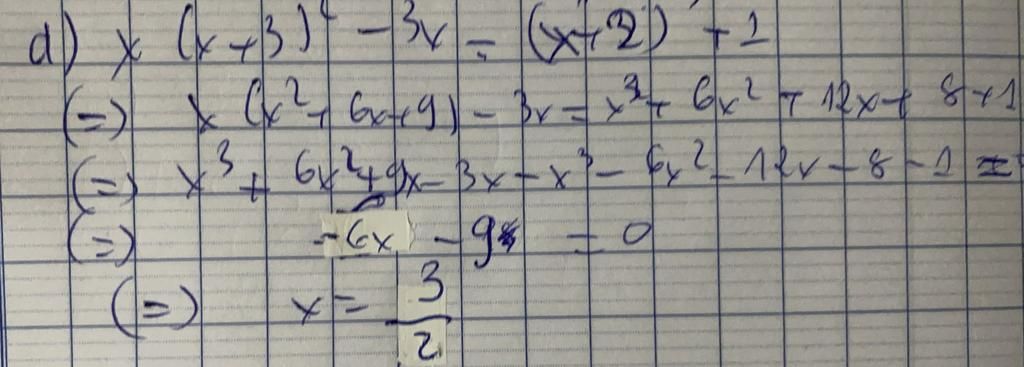 d) x (x+3)² - 3x = (x+2) + 1
(=) x (x² + 6x+9) - 3x = x³ + 6x² + 12x + 8 + 1
(=) x³ + 6x² + 9x - 3x - x³ - 6x² - 12x - 8 - 1 =
(=) -6x - 9 = 0
(=) x = 3/2